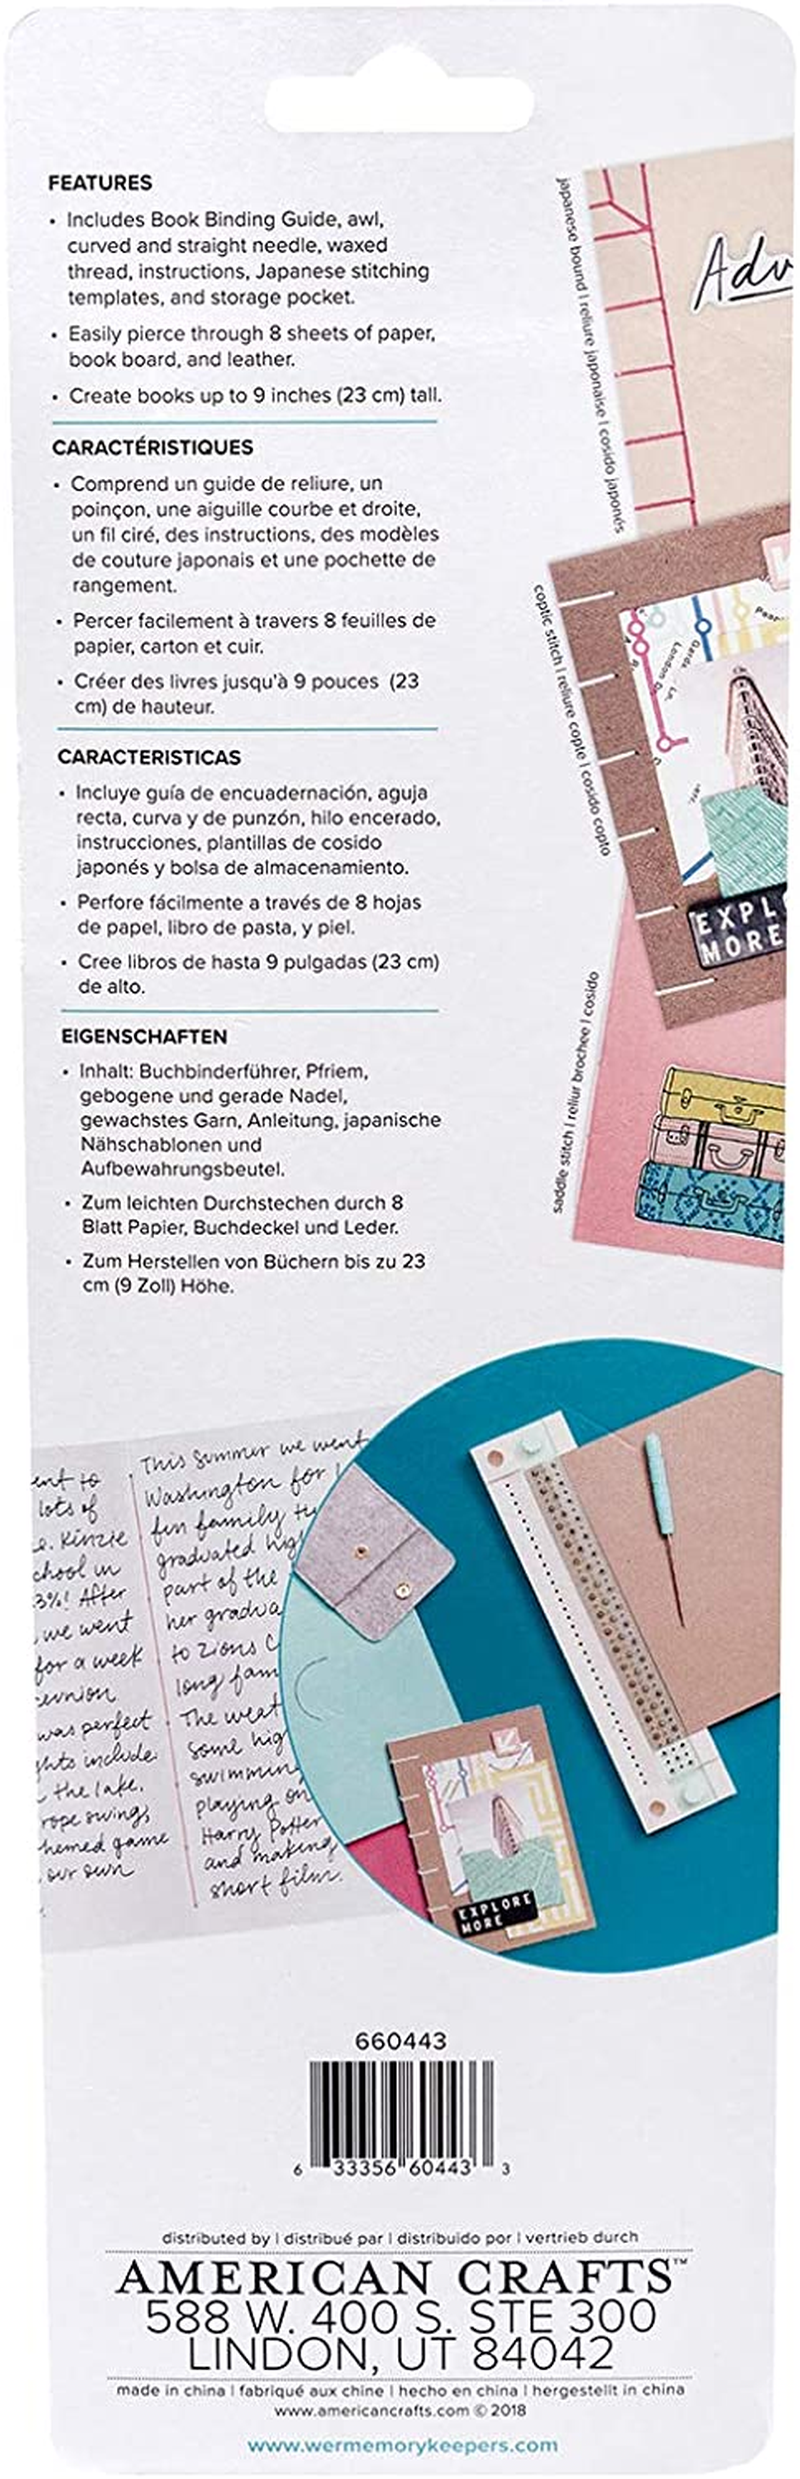 FEATURES
• Includes Book Binding Guide, awl,
curved and straight needle, waxed
thread, instructions, Japanese stitching
templates, and storage pocket.
• Easily pierce through 8 sheets of paper,
book board, and leather.
• Create books up to 9 inches (23 cm) tall.
CARACTÉRISTIQUES
• Comprend un guide de reliure, un
poinçon, une aiguille courbe et droite,
un fil ciré, des instructions, des modèles
de couture japonais et une pochette de
rangement.
• Percer facilement à travers 8 feuilles de
papier, carton et cuir.
• Créer des livres jusqu'à 9 pouces (23
cm) de hauteur.
CARACTERISTICAS
• Incluye guía de encuadernación, aguja
recta, curva y de punzón, hilo encerado,
instrucciones, plantillas de cosido
japonés y bolsa de almacenamiento.
• Perfore fácilmente a través de 8 hojas
de papel, libro de pasta, y piel.
• Cree libros de hasta 9 pulgadas (23 cm)
de alto.
EIGENSCHAFTEN
• Inhalt: Buchbinderführer, Pfriem,
gebogene und gerade Nadel,
gewachstes Garn, Anleitung, japanische
Nähschablonen und
Aufbewahrungsbeutel.
• Zum leichten Durchstechen durch 8
Blatt Papier, Buchdeckel und Leder.
• Zum Herstellen von Büchern bis zu 23
cm (9 Zoll) Höhe.
japanese bound | reliure japonaise | cosido japonés
Adv
coptic stitch | reliure copte | cosido copto
London
EXPL
MORE
saddle stitch | reliur brochee | cosido
ent to
lots of
e. Kinzie
chool in
3%! After
we went
for a week
eunion
was perfect
ghts include
the lake,
rope swings,
hemed game
our own
This summer we went
Washington for
fun family
graduated hig
part of the
her gradua
to Zions C
long fam
The weat
some hig
swimming
playing on
Harry Potter
and making
short film.
EXPLORE
MORE
660443
6 33356 60443 3
distributed by | distribué par | distribuido por | vertrieb durch
AMERICAN CRAFTS™
588 W. 400 S. STE 300
LINDON, UT 84042
made in china | fabriqué aux chine | hecho en china | hergestellt in china
www.americancrafts.com © 2018
www.wermemorykeepers.com